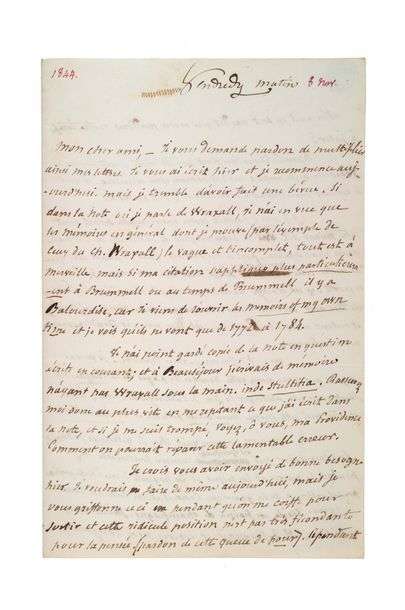 1844.
Vendredy matin 8 Nov.
Mon cher ami _ Je vous demande pardon de multiplier
ainsi mes lettres. Je vous ai écrit hier et je recommence auj-
ourd'hui. mais je tremble d'avoir fait une bévue. Si
dans la Note où je parle de Wraxall, je n'ai en vue que
les mémoires en général dont je prouve (par l'exemple de
ceux du Ch. Wraxall) le vague et l'incomplet, tout est à
merveille, mais si ma citation s'applique plus particulièrem-
ent à Brummell ou au temps de Brummell il y a
Balourdise, car Je viens de rouvrir les memoirs of my own
time et je vois qu'ils ne vont que de 1772 à 1784.
Je n'ai point gardé copie de la note en question
écrite en courant; et à Beauséjour j'écrivais de mémoire
n'ayant pas Wraxall sous la main. inde stultitia. Rassurez
moi donc au plus vite en me répétant ce que j'ai écrit dans
la note, et si je me suis trompé, voyez, ô vous, ma Providence
Comment on pourrait réparer cette lamentable erreur.
Je crois vous avoir envoyé de bonne besogne
hier. Je voudrais faire de même aujourd'hui, mais je
vous griffonne ceci pendant qu'on me coiffe pour
sortir et cette ridicule position n'est pas très fécondante
pour la pensée (pardon de cette queue de pour). Cependant